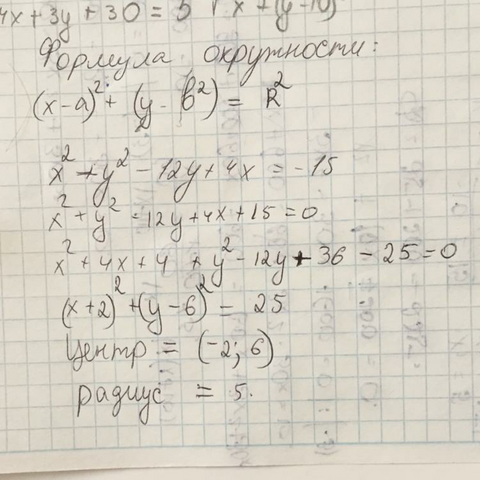 4x + 3y + 30 = 5 √x + (y - 10)
Формула окружности:
(x - a)² + (y - b²) = R²
x² + y² - 12y + 4x = -15
x² + y² - 12y + 4x + 15 = 0
x² + 4x + 4 + y² - 12y + 36 - 25 = 0
(x + 2)² + (y - 6)² = 25
центр = (-2; 6)
радиус = 5.